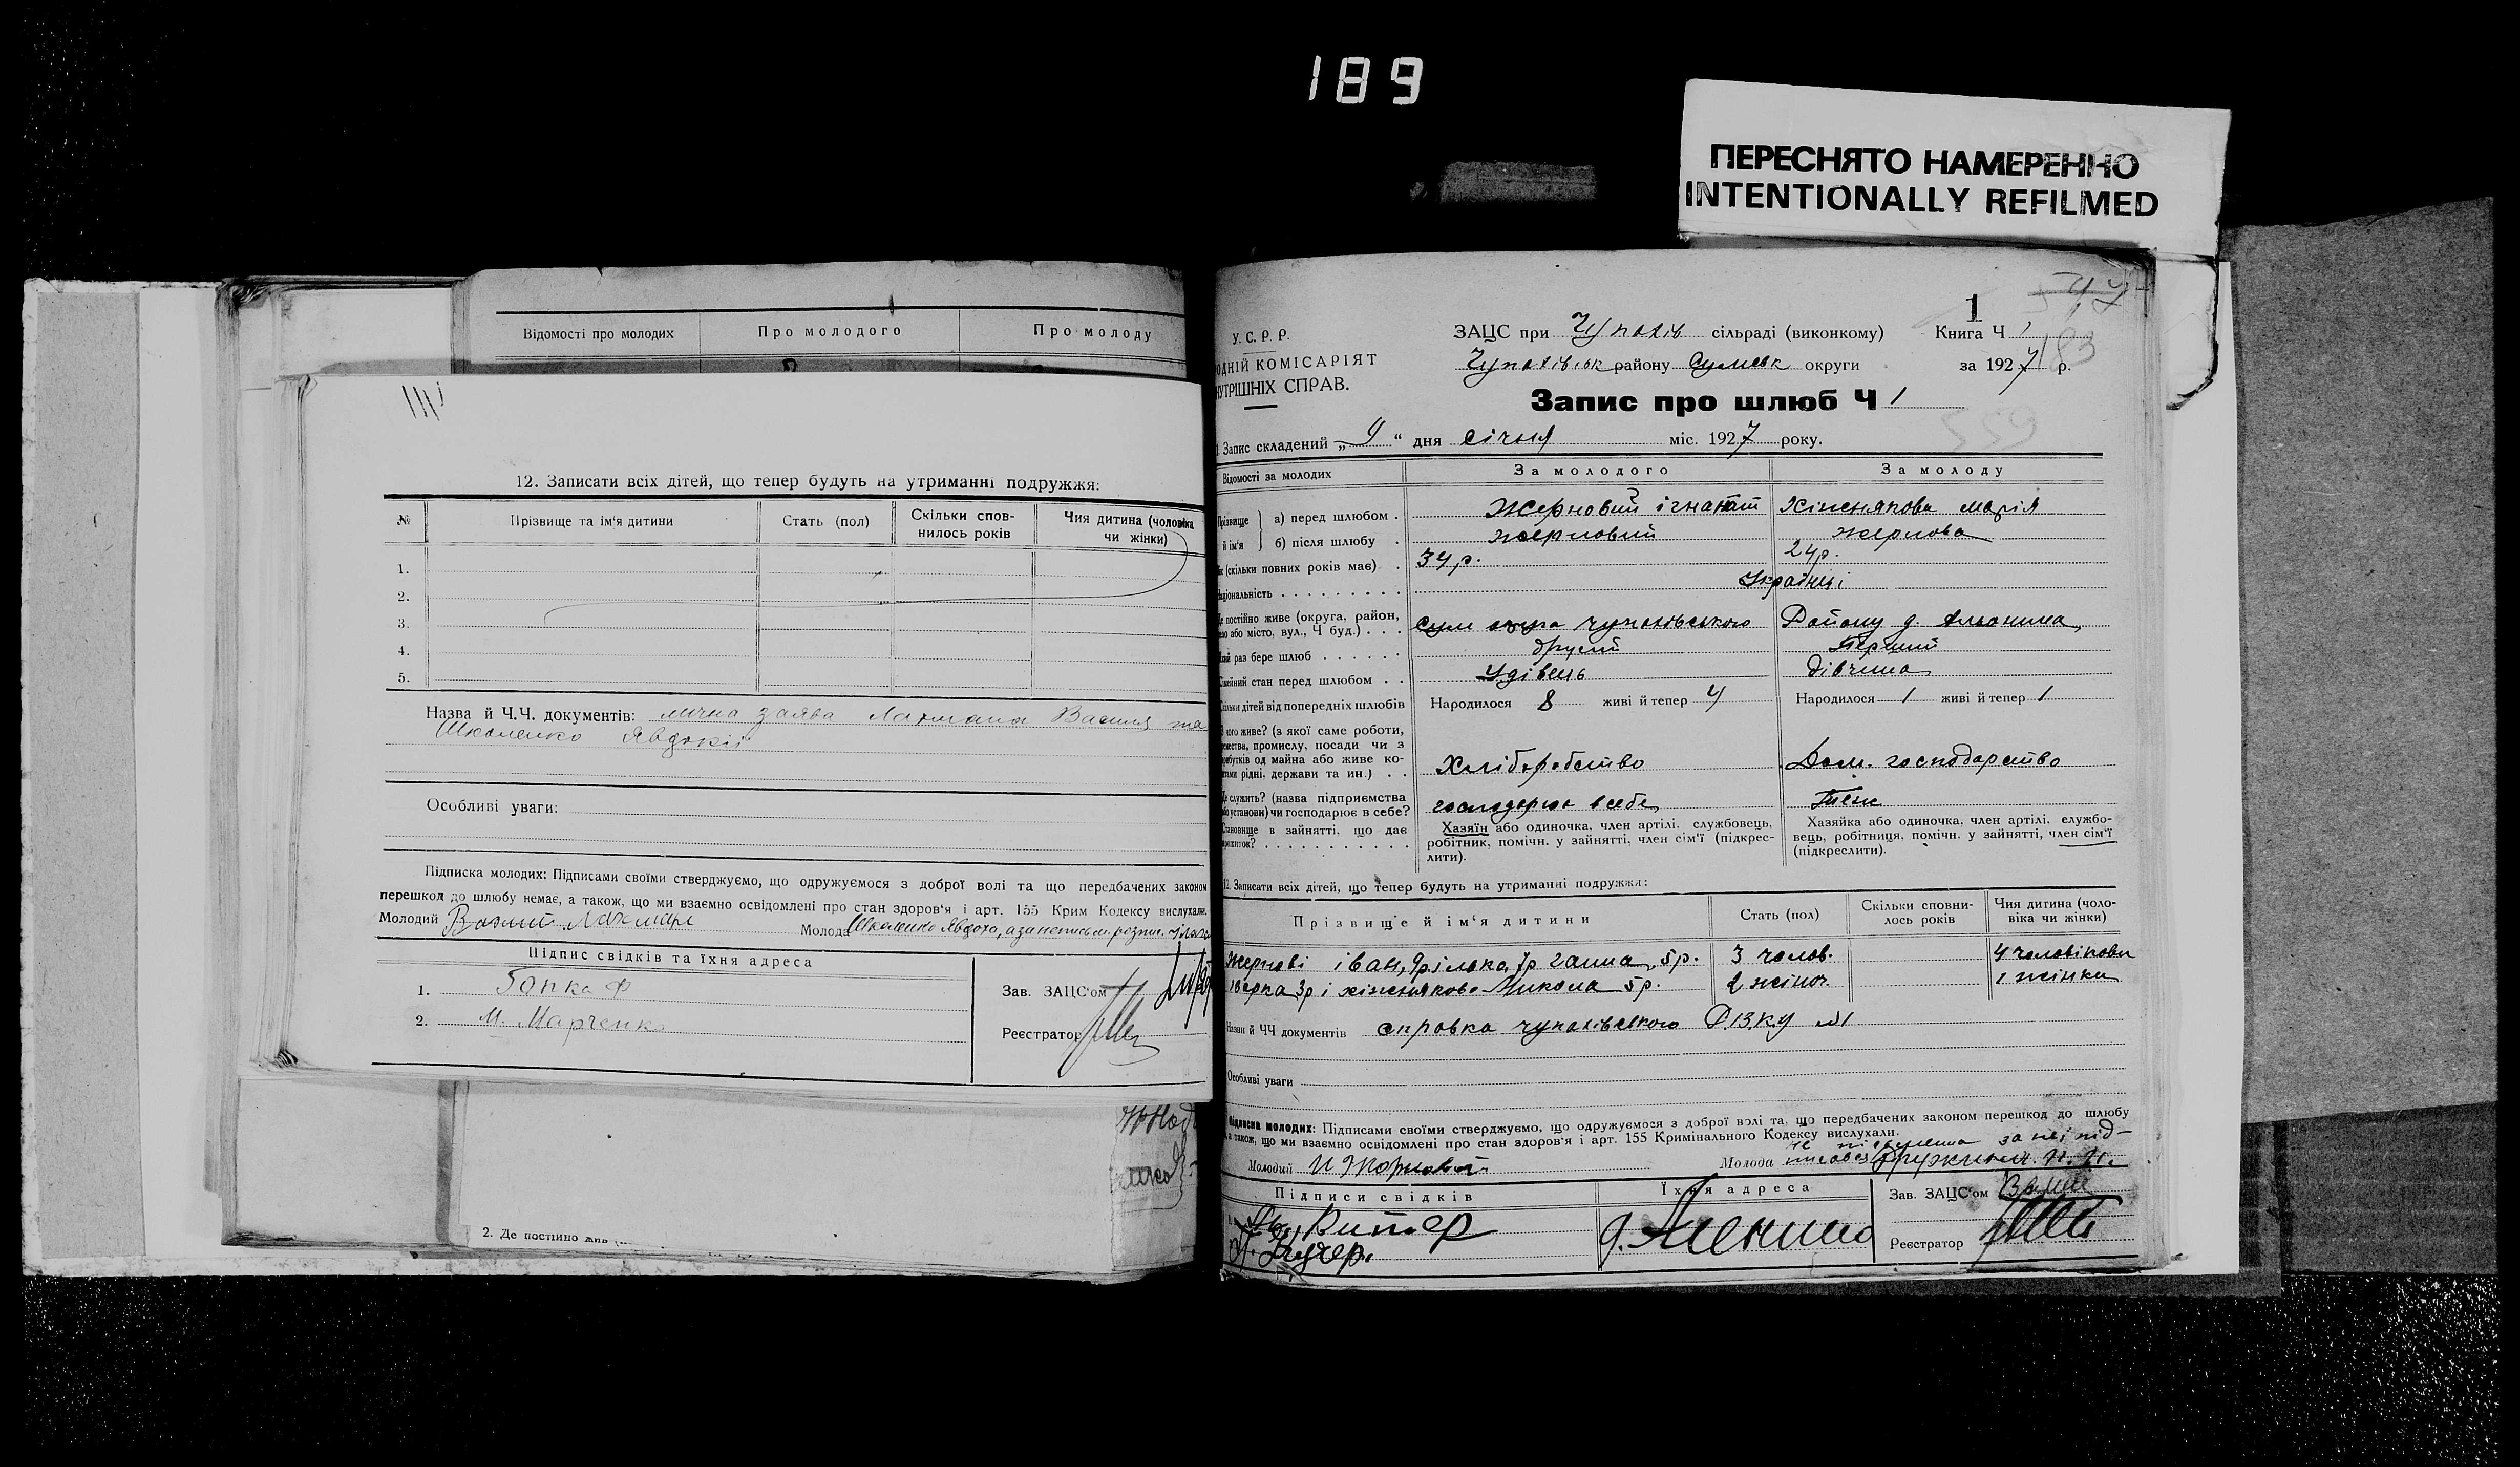 189
ПЕРЕСНЯТО НАМЕРЕННО
INTENTIONALLY REFILMED
Відомості про молодих Про молодого Про молоду
12. Записати всіх дітей, що тепер будуть на утриманні подружжя:
№ Прізвище та ім'я дитини Стать (пол) Скільки спов- нилось років Чия дитина (чоловіка чи жінки)
1.
2.
3.
4.
5.
Назва й Ч.Ч. документів: лична заява Лахмана Василя та
Шкоменко Явдокії
Особливі уваги:
Підписка молодих: Підписами своїми стверджуємо, що одружуємося з доброї волі та що передбачених законом
перешкод до шлюбу немає, а також, що ми взаємно освідомлені про стан здоров'я і арт. 155 Крим Кодексу вислухали.
Молодий Василий Лахман Молода Явдоха, а за
Підпис свідків та їхня адреса
1. Гапка Ф
2. М. Марченко
Зав. ЗАЦС'ом
Реєстратор
2. Де постійно
1
У. С. Р. Р.
ОДНІЙ КОМІСАРІЯТ
НУТРІШНІХ СПРАВ.
ЗАЦС при Чупахів сільраді (виконкому) Книга Ч 1
Чупахівськ району Сумськ округи за 1927 р.
183
Запис про шлюб Ч 1
559
1. Запис складений „9“ дня січня міс. 1927 року.
Відомості за молодих За молодого За молоду
Прізвище й ім'я
а) перед шлюбом . Жерновий ігнат Хіжнякова марія
б) після шлюбу . жерновий жернова
(скільки повних років має) . 34 р. 24 р.
Національність Українці
постійно живе (округа, район, село або місто, вул., Ч буд.) . . . Сум округа чупахівського Району д.
який раз бере шлюб другий Перший
Сімейний стан перед шлюбом . . Удівець дівчина
Скільки дітей від попередніх шлюбів Народилося 8 живі й тепер 4 Народилося 1 живі й тепер 1
З чого живе? (з якої саме роботи, ремества, промислу, посади чи з прибутків од майна або живе коштами рідні, держави та ин.) . . Хліборобство Дом. господарство
Де служить? (назва підприємства або установи) чи господарює в себе? господарює в себе Теж
Становище в зайнятті, що дає прожиток?
Хазяїн або одиночка, член артілі, службовець, робітник, помічн. у зайнятті, член сім'ї (підкреслити).
Хазяйка або одиночка, член артілі, службовець, робітниця, помічн. у зайнятті, член сім'ї (підкреслити).
12. Записати всіх дітей, що тепер будуть на утриманні подружжя:
Прізвище й ім'я дитини Стать (пол) Скільки сповни- лось років Чия дитина (чоло- віка чи жінки)
Жернові іван, 7р ганна, 5р. 3 чолов. 4 чоловікови
3р і хіжнякова Микола 5р. 2 жіноч. 1 жінки
Назви й ЧЧ документів справка чупахівського №1
Особливі уваги
Підписка молодих: Підписами своїми стверджуємо, що одружуємося з доброї волі та, що передбачених законом перешкод до шлюбу
а також, що ми взаємно освідомлені про стан здоров'я і арт. 155 Кримінального Кодексу вислухали.
Молодий И Жорновий Молода за неї під-
Підписи свідків Їхня адреса Зав. ЗАЦС'ом
Кучер. Реєстратор